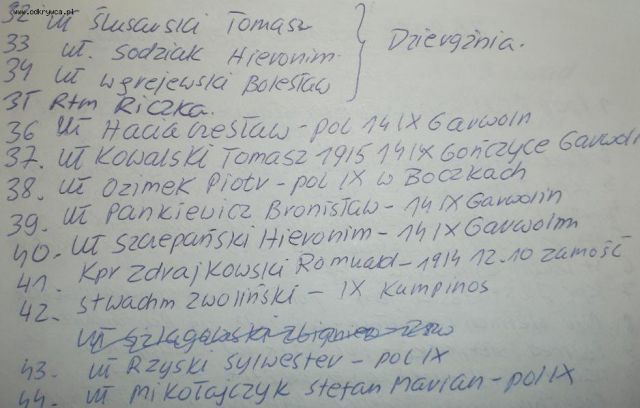 www.odkrywca.pl
32 uł Ślusarski Tomasz
33 uł. Sodziak Hieronim
34 uł Wgrejewski Bolesław
Dzierążnia.
35 Rtm Riczka.
36 uł Hacia Czesław - pol 14 IX Garwolin
37. uł Kowalski Tomasz 1915 14 IX Gończyce Garwoli
38. uł Ozimek Piotr - pol IX w Boczkach
39. uł Pankiewicz Bronisław - 14 IX Garwolin
40. uł Szczepański Hieronim - 14 IX Garwolin
41. Kpr Zdrajkowski Romuald - 1914 12.10 Zamość
42. st wachm Zwoliński - IX Kampinos
43. uł Rzyski Sylwester - pol IX
44. uł Mikołajczyk Stefan Marian - pol IX